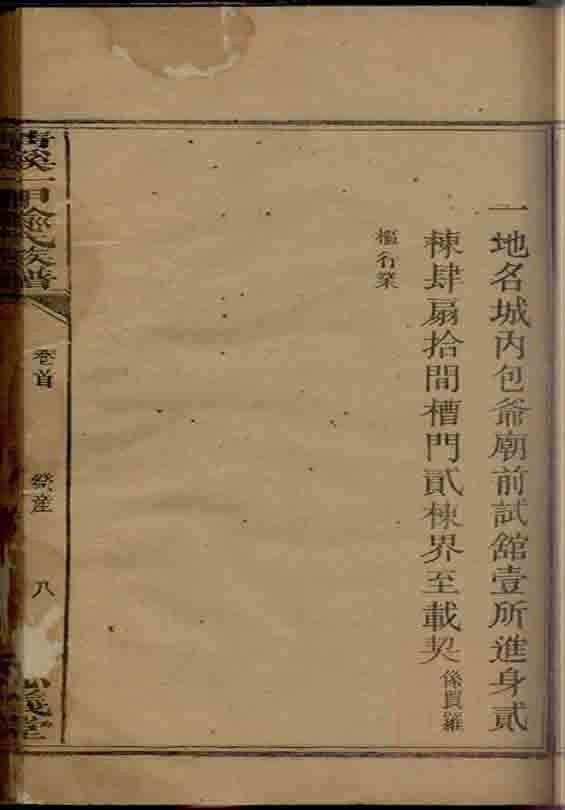 一地名城内包爺廟前試舘壹所進身貳
棟肆扇拾間槽門貳棟界至載契係買羅
樞行業
族譜
卷首
祭産
八